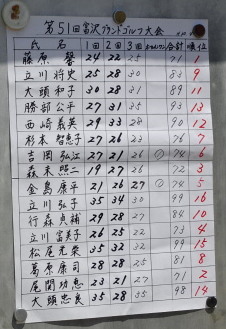 第51回富沢グランドゴルフ大会
氏名 1回 2回 3回 ホールインワン 合計 順位
藤原 馨 24 22 25 71 1
立川将史 25 28 30 83 9
大頭和子 30 28 31 89 11
勝部公平 27 31 35 93 13
西崎義英 29 33 28 90 12
杉本智恵子 27 26 23 76 7
吉岡弘江 27 21 26 ① 74 6
森末照二 19 27 26 72 3
金島康平 21 26 27 ① 74 5
立川弘子 35 34 30 99 16
行森貞補 29 28 27 84 10
立川富美子 26 25 22 73 4
松尾光栄 35 32 32 99 15
葛原康司 28 28 25 81 8
尾関功恵 23 21 27 71 2
大頭忠良 35 28 35 98 14